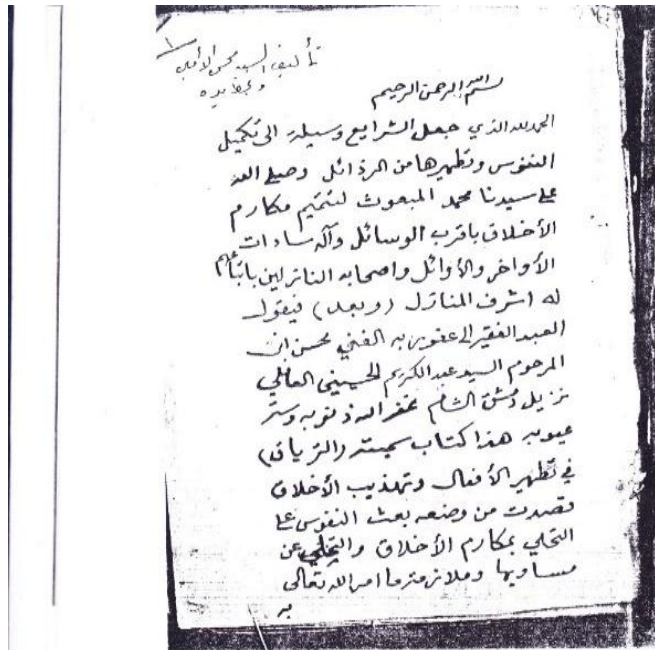 تأليف السيد محسن الأمين
وبخط يده
بسم الله الرحمن الرحيم
الحمد لله الذي جعل الشرايع وسيلة الى تكميل
النفوس وتطهيرها من الرذائل وصلى الله
على سيدنا محمد المبعوث لتتميم مكارم
الأخلاق باقرب الوسائل وآله سادات
الأواخر والأوائل واصحابه النازلين باتباعهم
له اشرف المنازل (وبعد) فيقول
العبد الفقير الى عفو ربه الغني محسن ابن
المرحوم السيد عبد الكريم الحسيني العاملي
نزيل دمشق الشام غفر الله ذنوبه وستر
عيوبه هذا كتاب سميته (الترياق)
في تطهير الأفعال وتهذيب الأخلاق
قصدت من وضعه بعث النفوس على
التحلي بمكارم الأخلاق والتخلي عن
مساويها وملازمة ما امر الله تعالى
به